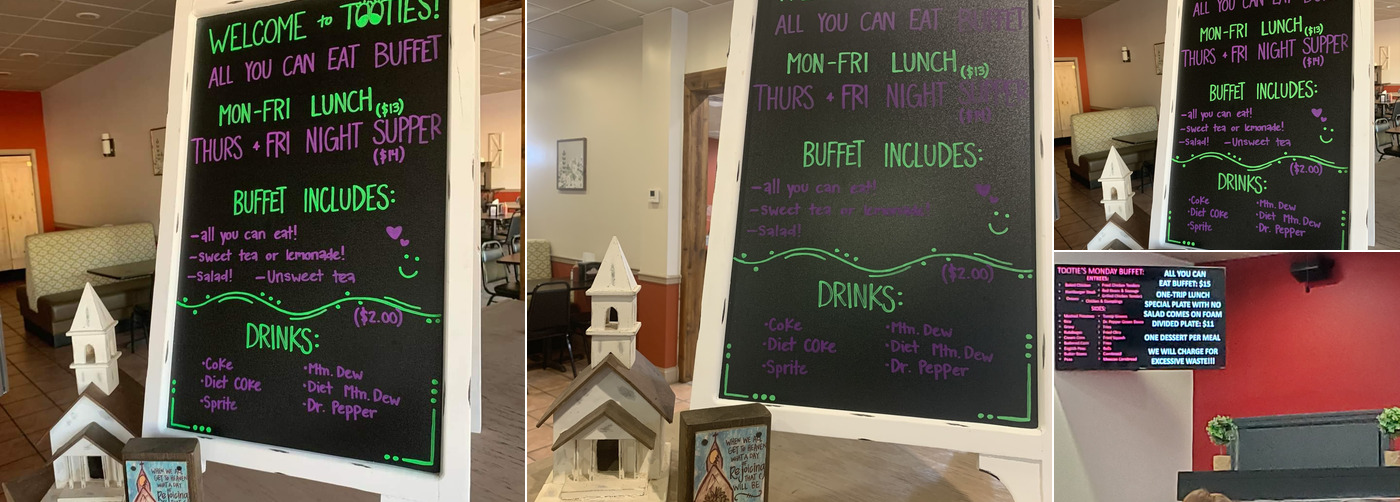 WELCOME to TOOTIES!
ALL YOU CAN EAT BUFFET
MON-FRI LUNCH ($13)
THURS + FRI NIGHT SUPPER
($14)
BUFFET INCLUDES:
-all you can eat!
-sweet tea or lemonade!
-Salad! -Unsweet tea
($2.00)
DRINKS:
·Coke ·Mtn. Dew
·Diet Coke ·Diet Mtn. Dew
·Sprite ·Dr. Pepper
WHEN WE ALL
GET TO HEAVEN
WHAT A DAY
OF Rejoicing
THAT
WILL BE
ALL YOU CAN EAT BUFFET
MON-FRI LUNCH ($13)
THURS + FRI NIGHT SUPPER
($14)
BUFFET INCLUDES:
-all you can eat!
-sweet tea or lemonade!
-Salad!
($2.00)
DRINKS:
·Coke ·Mtn. Dew
·Diet Coke ·Diet Mtn. Dew
·Sprite ·Dr. Pepper
WHEN WE ALL
GET TO HEAVEN
WHAT A DAY
OF Rejoicing
THAT
WILL BE
ALL YOU CAN EAT
MON-FRI LUNCH ($13)
THURS + FRI NIGHT SUPPER
($14)
BUFFET INCLUDES:
-all you can eat!
-sweet tea or lemonade!
-Salad! -Unsweet tea
($2.00)
DRINKS:
·Coke ·Mtn. Dew
·Diet Coke ·Diet Mtn. Dew
·Sprite ·Dr. Pepper
TOOTIE'S MONDAY BUFFET:
ENTREES:
SIDES:
ALL YOU CAN
EAT BUFFET: $15
ONE-TRIP LUNCH
SPECIAL PLATE WITH NO
SALAD COMES ON FOAM
DIVIDED PLATE: $11
ONE DESSERT PER MEAL
WE WILL CHARGE FOR
EXCESSIVE WASTE!!!